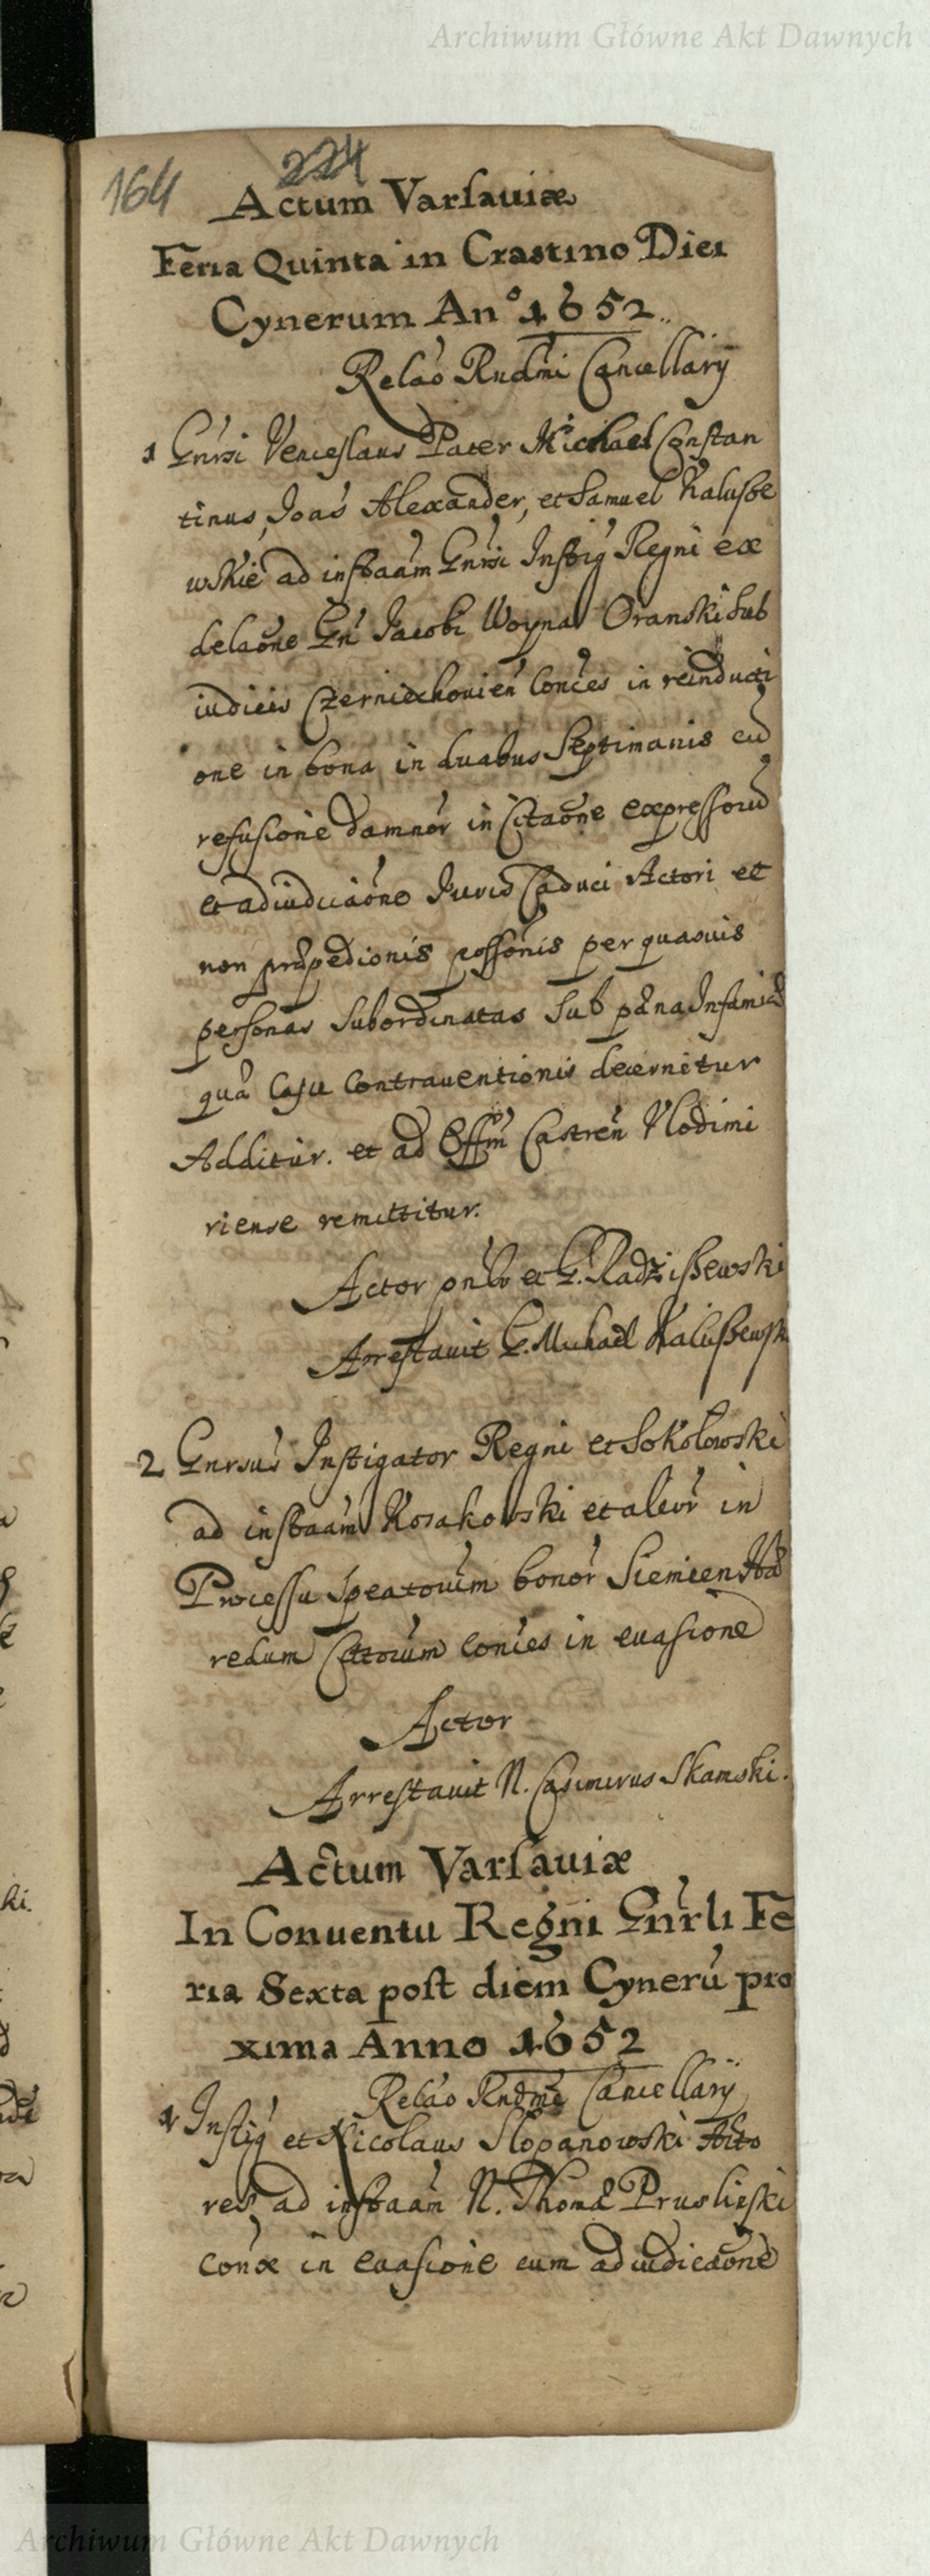 Archiwum Główne Akt Dawnych
164
224
Actum Varsauiæ
Feria Quinta in Crastino Diei
Cynerum An° 1652
Relaõ Rndmi Cancellarÿ
1 Gnrsi Venceslaus Pater Michael Constan
tinus, Joãs Alexander, et Samuel Kalusze
wskie ad instaãm Gnrsi Instig Regni ex
delaõne Gn Jacobi Woyna Oranski Sub
iudicis Czerniechouien conces in reinducti
one in bona in duabus Septimanis cu
refusione damnor in Citaõne expressoru
et adiudicaõne Juris Caduci Actori et
non præpedionis possonis per quasuis
personas subordinatas sub pæna Infamiæ
quà casu contrauentionis decernetur
Additur. et ad Offm Castren Vlodimi
riense remittitur.
Actor pnbr et G. Radziszewski
Arrestauit G. Michael Kaluszewski
2 Gnrsus Instigator Regni et Sokołowski
ad instaãm Kosakowski et alior in
Processu speatorum bonor Siemien Hæ
redum Citatorum conces in euasione
Actor
Arrestauit N. Casimirus Skamski.
Actum Varsauiæ
In Conuentu Regni Gnrli Fe
ria Sexta post diem Cynerũ pro
xima Anno 1652
Relaõ Rndmi Cancellarÿ
1 Instig et Nicolaus Slopanowski Acto
res, ad instaãm N. Thomæ Pruslinski
conæ in euasione cum adiudicaõne
Archiwum Główne Akt Dawnych